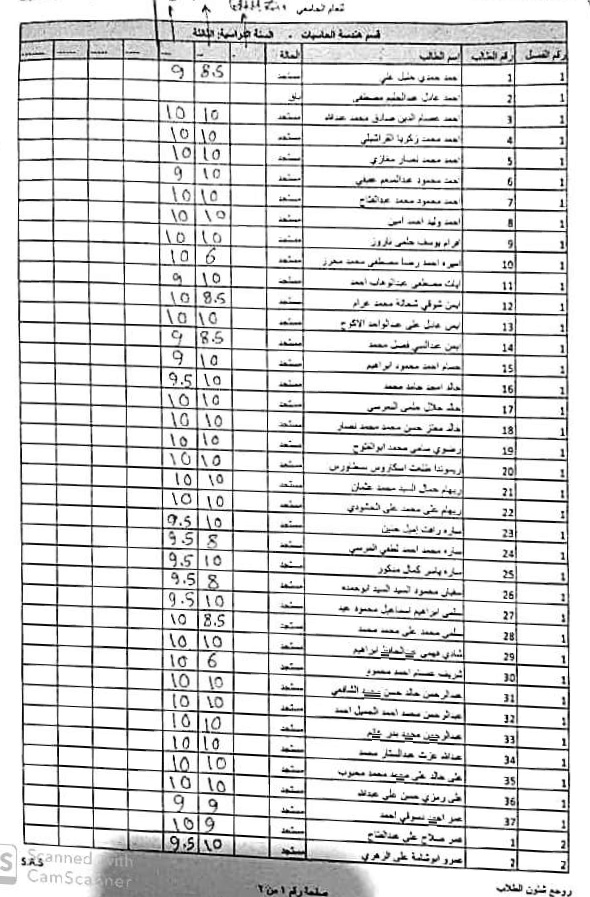 للعام الجامعي
قسم هندسة الحاسبات - السنة الدراسية: الثالثة
رقم الفصل رقم الطالب اسم الطالب الحالة
1 1 احمد حمدي خليل علي مستجد 8.5 9
1 2 احمد عادل عبدالحليم مصطفى باق
1 3 احمد عصام الدين صادق محمد عبدالله مستجد 10 10
1 4 احمد محمد زكريا القراشيلي مستجد 10 10
1 5 احمد محمد نصار مغازي مستجد 10 10
1 6 احمد محمود عبدالمنعم عفيفي مستجد 10 9
1 7 احمد محمود محمد عبدالفتاح مستجد 10 10
1 8 احمد وليد احمد امين مستجد 10 10
1 9 افرام يوسف حلمي باروز مستجد 10 10
1 10 اميره احمد رضا مصطفى محمد محرز مستجد 6 10
1 11 ايات مصطفى عبدالوهاب احمد مستجد 10 9
1 12 ايمن شوقي شحاتة محمد عرام مستجد 8.5 10
1 13 ايمن عادل على عبدالواحد الاكوح مستجد 10 10
1 14 ايمن عبدالنبي فضل محمد مستجد 8.5 9
1 15 حسام احمد محمود ابراهيم مستجد 10 9
1 16 خالد امجد حامد محمد مستجد 10 9.5
1 17 خالد جلال حلمى المرسي مستجد 10 10
1 18 خالد معتز حسن محمد محمد نصار مستجد 10 10
1 19 رضوي سامي محمد ابوالفتوح مستجد 10 10
1 20 طلعت اسكاروس بسطاورس مستجد 10 10
1 21 ريهام جمال السيد محمد عثمان مستجد 10 10
1 22 ريهام على محمد على الحشودي مستجد 10 10
1 23 ساره رافت اميل حنين مستجد 10 9.5
1 24 ساره محمد احمد لطفي المرسي مستجد 8 9.5
1 25 ساره ياسر كمال مذكور مستجد 10 9.5
1 26 سفيان محمود السيد السيد ابوحمده مستجد 8 9.5
1 27 سلمى ابراهيم اسماعيل محمود عيد مستجد 10 9.5
1 28 سلمى محمد على محمد محمد مستجد 8.5 10
1 29 شادي فهمى عبدالحافظ ابراهيم مستجد 10 10
1 30 شريف عصام احمد محمود مستجد 6 10
1 31 عبدالرحمن خالد حسن محمد الشافعي مستجد 10 10
1 32 عبدالرحمن محمد احمد الجميل احمد مستجد 10 10
1 33 عبدالرحمن محمد بدر غانم مستجد 10 10
1 34 عبدالله عزت عبدالستار محمد مستجد 10 10
1 35 على خالد على محمد محمد محبوب مستجد 10 10
1 36 على رمزي حسن على عبدالله مستجد 10 10
1 37 عمر احمد دسوقي احمد مستجد 9 9
2 1 عمر صلاح على عبدالفتاح مستجد 9 10
2 2 عمرو ابوشامة على الزهري مستجد 10 9.5
S.A.S
صفحة رقم ١ من ٦
روجع شئون الطلاب
Scanned with
CamScanner